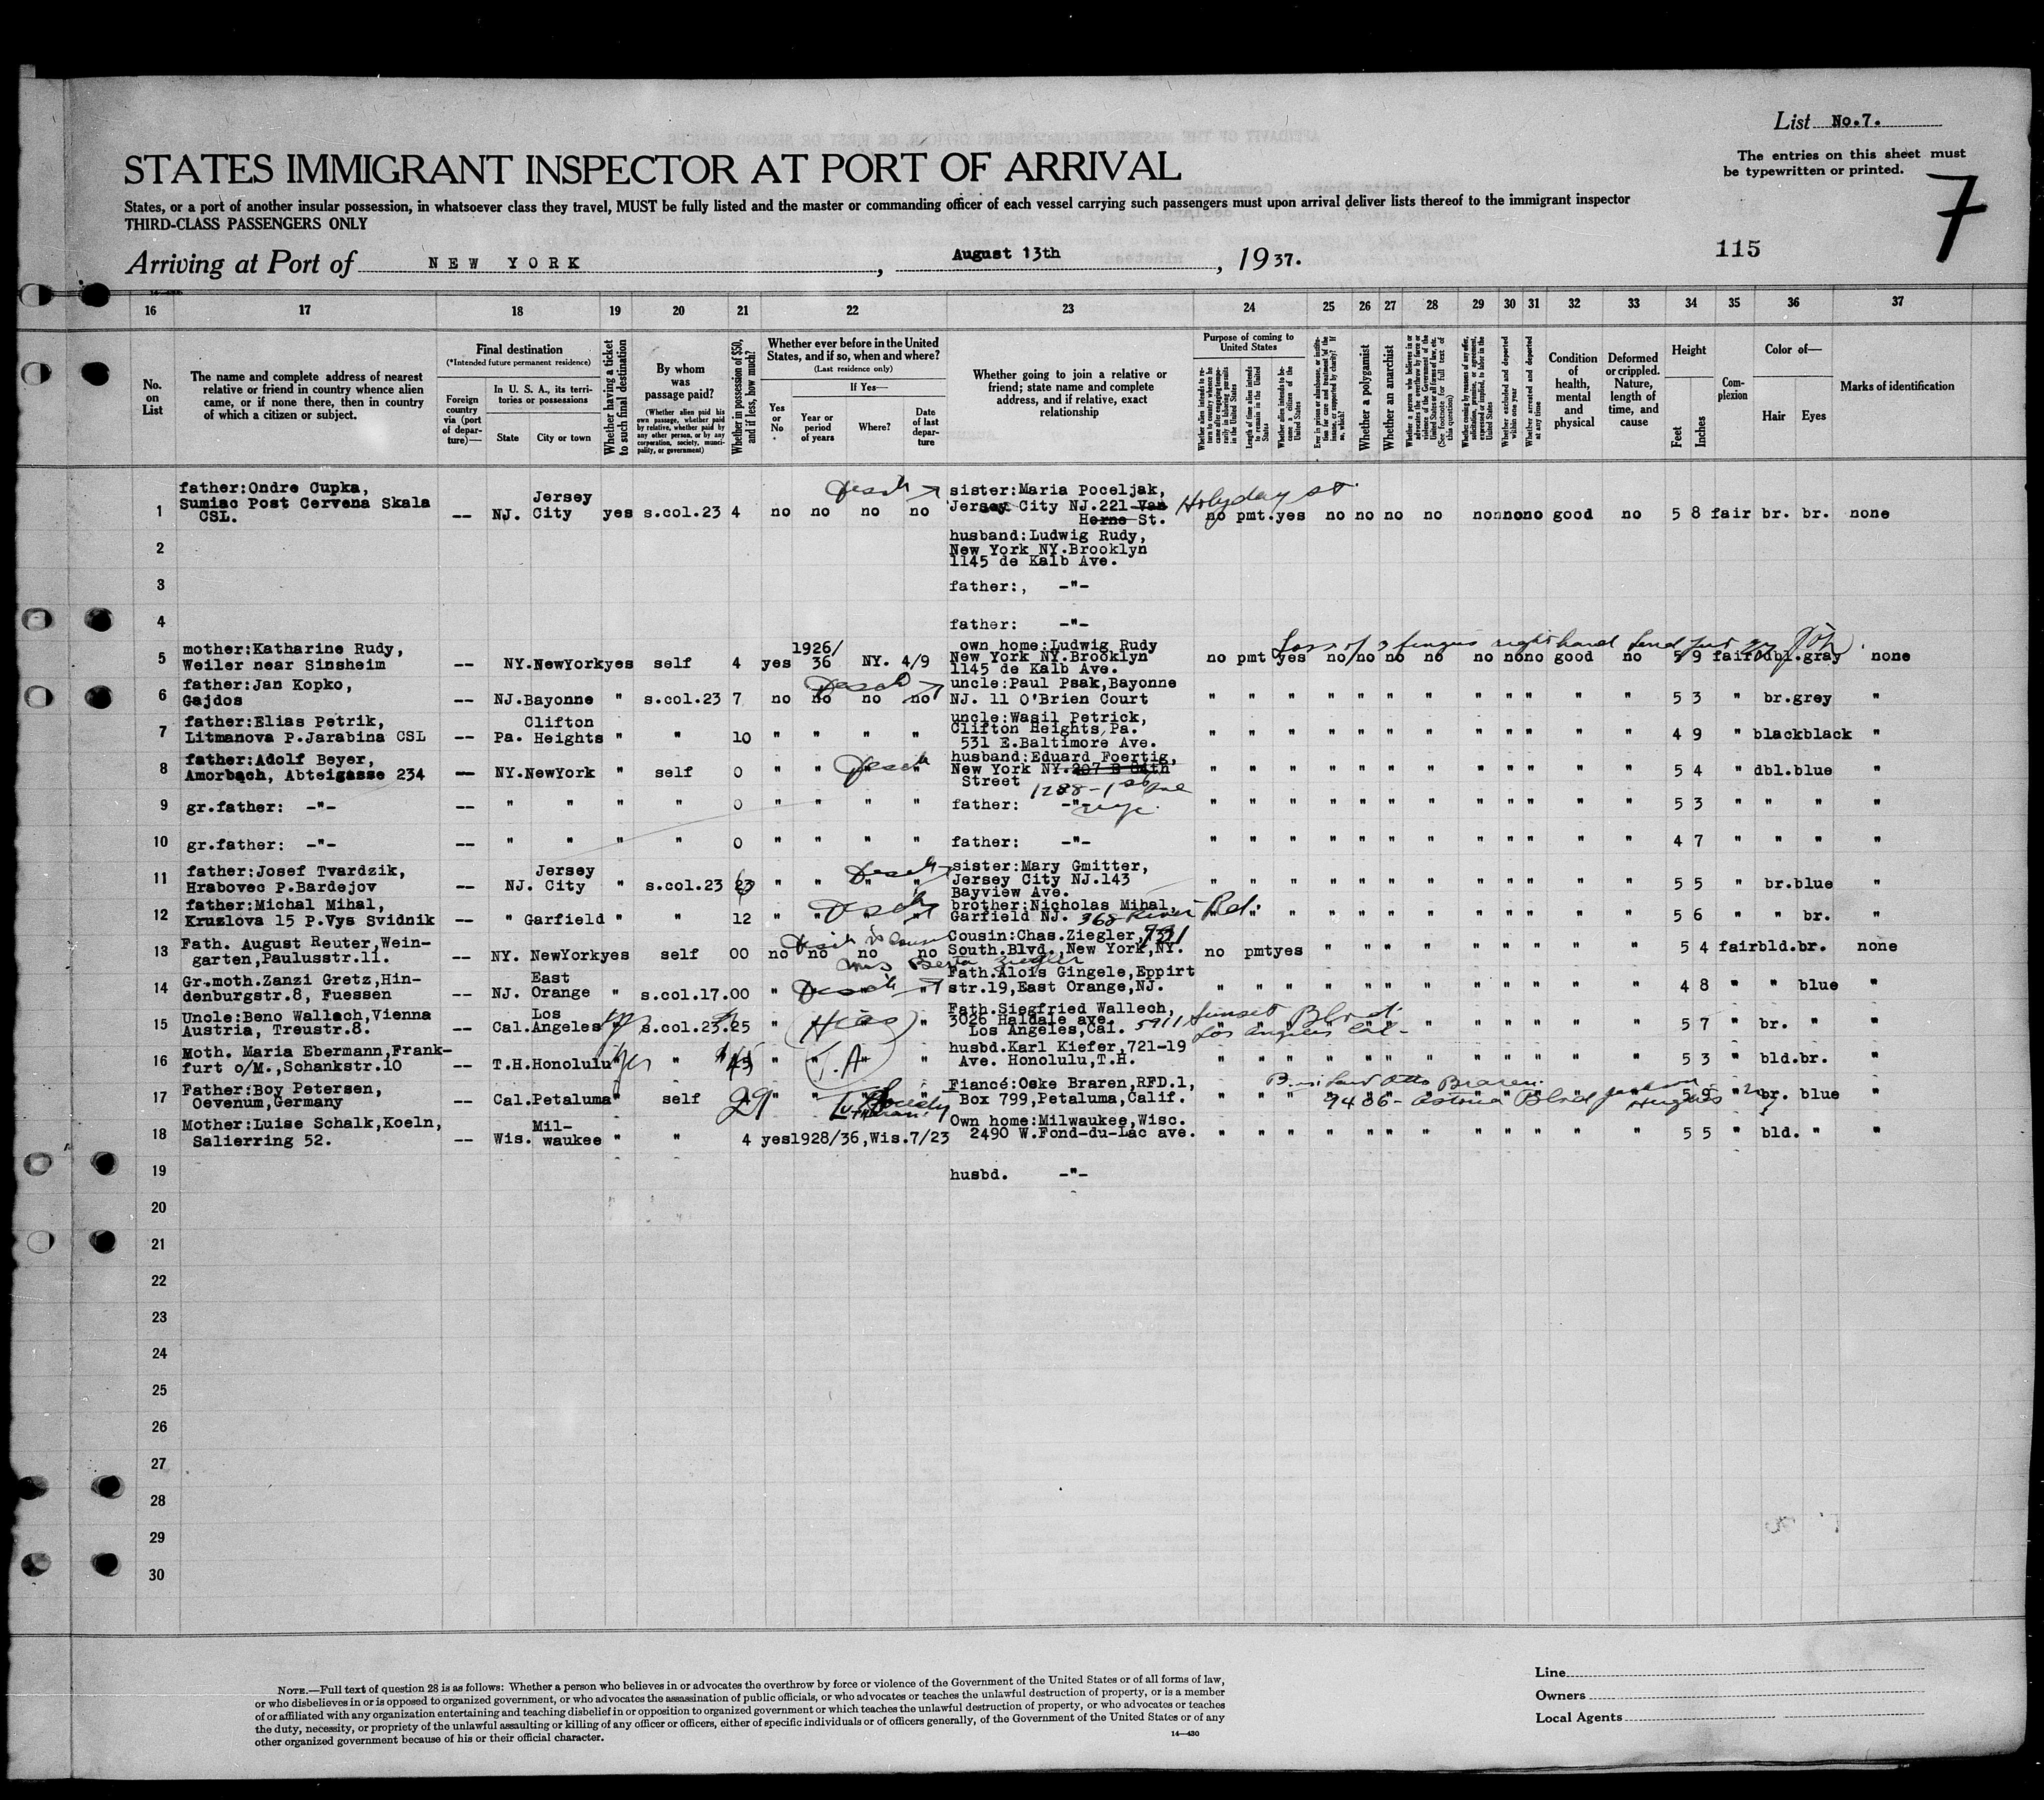 List No.7.
The entries on this sheet must
be typewritten or printed.
7
STATES IMMIGRANT INSPECTOR AT PORT OF ARRIVAL
States, or a port of another insular possession, in whatsoever class they travel, MUST be fully listed and the master or commanding officer of each vessel carrying such passengers must upon arrival deliver lists thereof to the immigrant inspector
THIRD-CLASS PASSENGERS ONLY
115
Arriving at Port of NEW YORK, August 13th, 1937.
16 17 18 19 20 21 22 23 24 25 26 27 28 29 30 31 32 33 34 35 36 37
No. on List
The name and complete address of nearest relative or friend in country whence alien came, or if none there, then in country of which a citizen or subject.
Final destination
(*Intended future permanent residence)
Foreign country via (port of departure)—
In U. S. A., its territories or possessions
State
City or town
Whether having a ticket to such final destination
By whom was passage paid?
(Whether alien paid his own passage, whether paid by relative, whether paid by any other person, or by any corporation, society, municipality, or government)
Whether in possession of $50, and if less, how much?
Whether ever before in the United States, and if so, when and where?
(Last residence only)
Yes or No
If Yes—
Year or period of years
Where?
Date of last departure
Whether going to join a relative or friend; state name and complete address, and if relative, exact relationship
Purpose of coming to United States
Length of time alien intends to remain in the United States
Whether alien intends to become a citizen of the United States
Whether a polygamist
Whether an anarchist
Whether excluded and deported within one year
Whether arrested and deported at any time
Condition of health, mental and physical
Deformed or crippled. Nature, length of time, and cause
Height
Feet
Inches
Complexion
Color of—
Hair
Eyes
Marks of identification
1 father:Ondre Cupka, Sumiac Post Cervena Skala CSL. -- NJ. Jersey City yes s.col.23 4 no no no no sister:Maria Poceljak, Jersey City NJ.221 Van Horne St. no pmt.yes no no no no no no no good no 5 8 fair br. br. none
2 husband:Ludwig Rudy, New York NY.Brooklyn 1145 de Kalb Ave.
3 father:, -"-
4 father: -"-
Loss of 3 fingers right hand
5 mother:Katharine Rudy, Weiler near Sinsheim -- NY.NewYork yes self 4 yes 1926/36 NY. 4/9 own home:Ludwig Rudy New York NY.Brooklyn 1145 de Kalb Ave. no pmt yes no no no no no no no good no 5 9 fair dbl.gray none
6 father:Jan Kopko, Gajdos -- NJ.Bayonne " s.col.23 7 no no no no uncle:Paul Psak,Bayonne NJ. 11 O'Brien Court " " " " " " " " " " " " 5 3 " br.grey "
7 father:Elias Petrik, Litmanova P.Jarabina CSL -- Pa. Clifton Heights " " 10 " " " " uncle:Wasil Petrick, Clifton Heights,Pa. 531 E.Baltimore Ave. " " " " " " " " " " " " 4 9 " black black "
8 father:Adolf Beyer, Amorbach, Abteigasse 234 -- NY.NewYork " self 0 " " " husband:Eduard Foertig, New York NY. 207 E 84th Street " " " " " " " " " " " " 5 4 " dbl.blue "
9 gr.father: -"- -- " " " " 0 " " " " father: -"- " " " " " " " " " " " " 5 3 " " " "
10 gr.father: -"- -- " " " " 0 " " " " father: -"- " " " " " " " " " " " " 4 7 " " " "
11 father:Josef Tvardzik, Hrabovec P.Bardejov -- NJ. Jersey City " s.col.23 23 " " " " sister:Mary Gmitter, Jersey City NJ.143 Bayview Ave. " " " " " " " " " " " " 5 5 " br.blue "
12 father:Michal Mihal, Kruzlova 15 P.Vys Svidnik -- " Garfield " " 12 " " " " brother:Nicholas Mihal, Garfield NJ. 368 River Rd. " " " " " " " " " " 5 6 " " br. "
13 Fath. August Reuter,Weingarten,Paulusstr.11. -- NY. NewYork yes self 00 no no no no Cousin:Chas.Ziegler, South.Blvd.,New York,NY. no pmt yes " " " " " " " " " 5 4 fair bld.br. none
14 Gr.moth.Zanzi Gretz,Hindenburgstr.8, Fuessen -- NJ. East Orange " s.col.17.00 " " " " Fath.Alois Gingele,Eppirt str.19,East Orange,NJ. " " " " " " " " " " " " 4 8 " " blue "
15 Uncle:Beno Wallach,Vienna Austria, Treustr.8. -- Cal. Los Angeles s.col.23.25 " (Hias) " Fath.Siegfried Wallech, 3026 Haldale ave. Los Angeles,Cal. 5911 Sunset Blvd. Los Angeles Cal- " " " " " " " " " " " 5 7 " br. " "
16 Moth. Maria Ebermann,Frankfurt o/M.,Schankstr.10 -- T.H.Honolulu yes " 45 " (T.A) " husbd.Karl Kiefer,721-19 Ave. Honolulu,T.H. " " " " " " " " " " " " 5 3 " bld.br. "
17 Father:Boy Petersen, Oevenum,Germany -- Cal.Petaluma " self 29 " " Lutheran Society Fiancé:Oske Braren,RFD.1, Box 799,Petaluma,Calif. Otto Braren 9406- Astoria Blvd Jackson Heights " " " " 5 9 " br. blue "
18 Mother:Luise Schalk,Koeln, Salierring 52. -- Wis. Milwaukee " " 4 yes1928/36,Wis.7/23 Own home:Milwaukee,Wisc. 2490 W.Fond-du-Lac ave. " " " " " " " " " " " " 5 5 " bld. " "
19 husbd. -"-
20
21
22
23
24
25
26
27
28
29
30
NOTE.—Full text of question 28 is as follows: Whether a person who believes in or advocates the overthrow by force or violence of the Government of the United States or of all forms of law,
or who disbelieves in or is opposed to organized government, or who advocates the assassination of public officials, or who advocates or teaches the unlawful destruction of property, or is a member
of or affiliated with any organization entertaining and teaching disbelief in or opposition to organized government or which teaches the unlawful destruction of property, or who advocates or teaches
the duty, necessity, or propriety of the unlawful assaulting or killing of any officer or officers, either of specific individuals or of officers generally, of the Government of the United States or of any
other organized government because of his or their official character.
14—430
Line
Owners
Local Agents